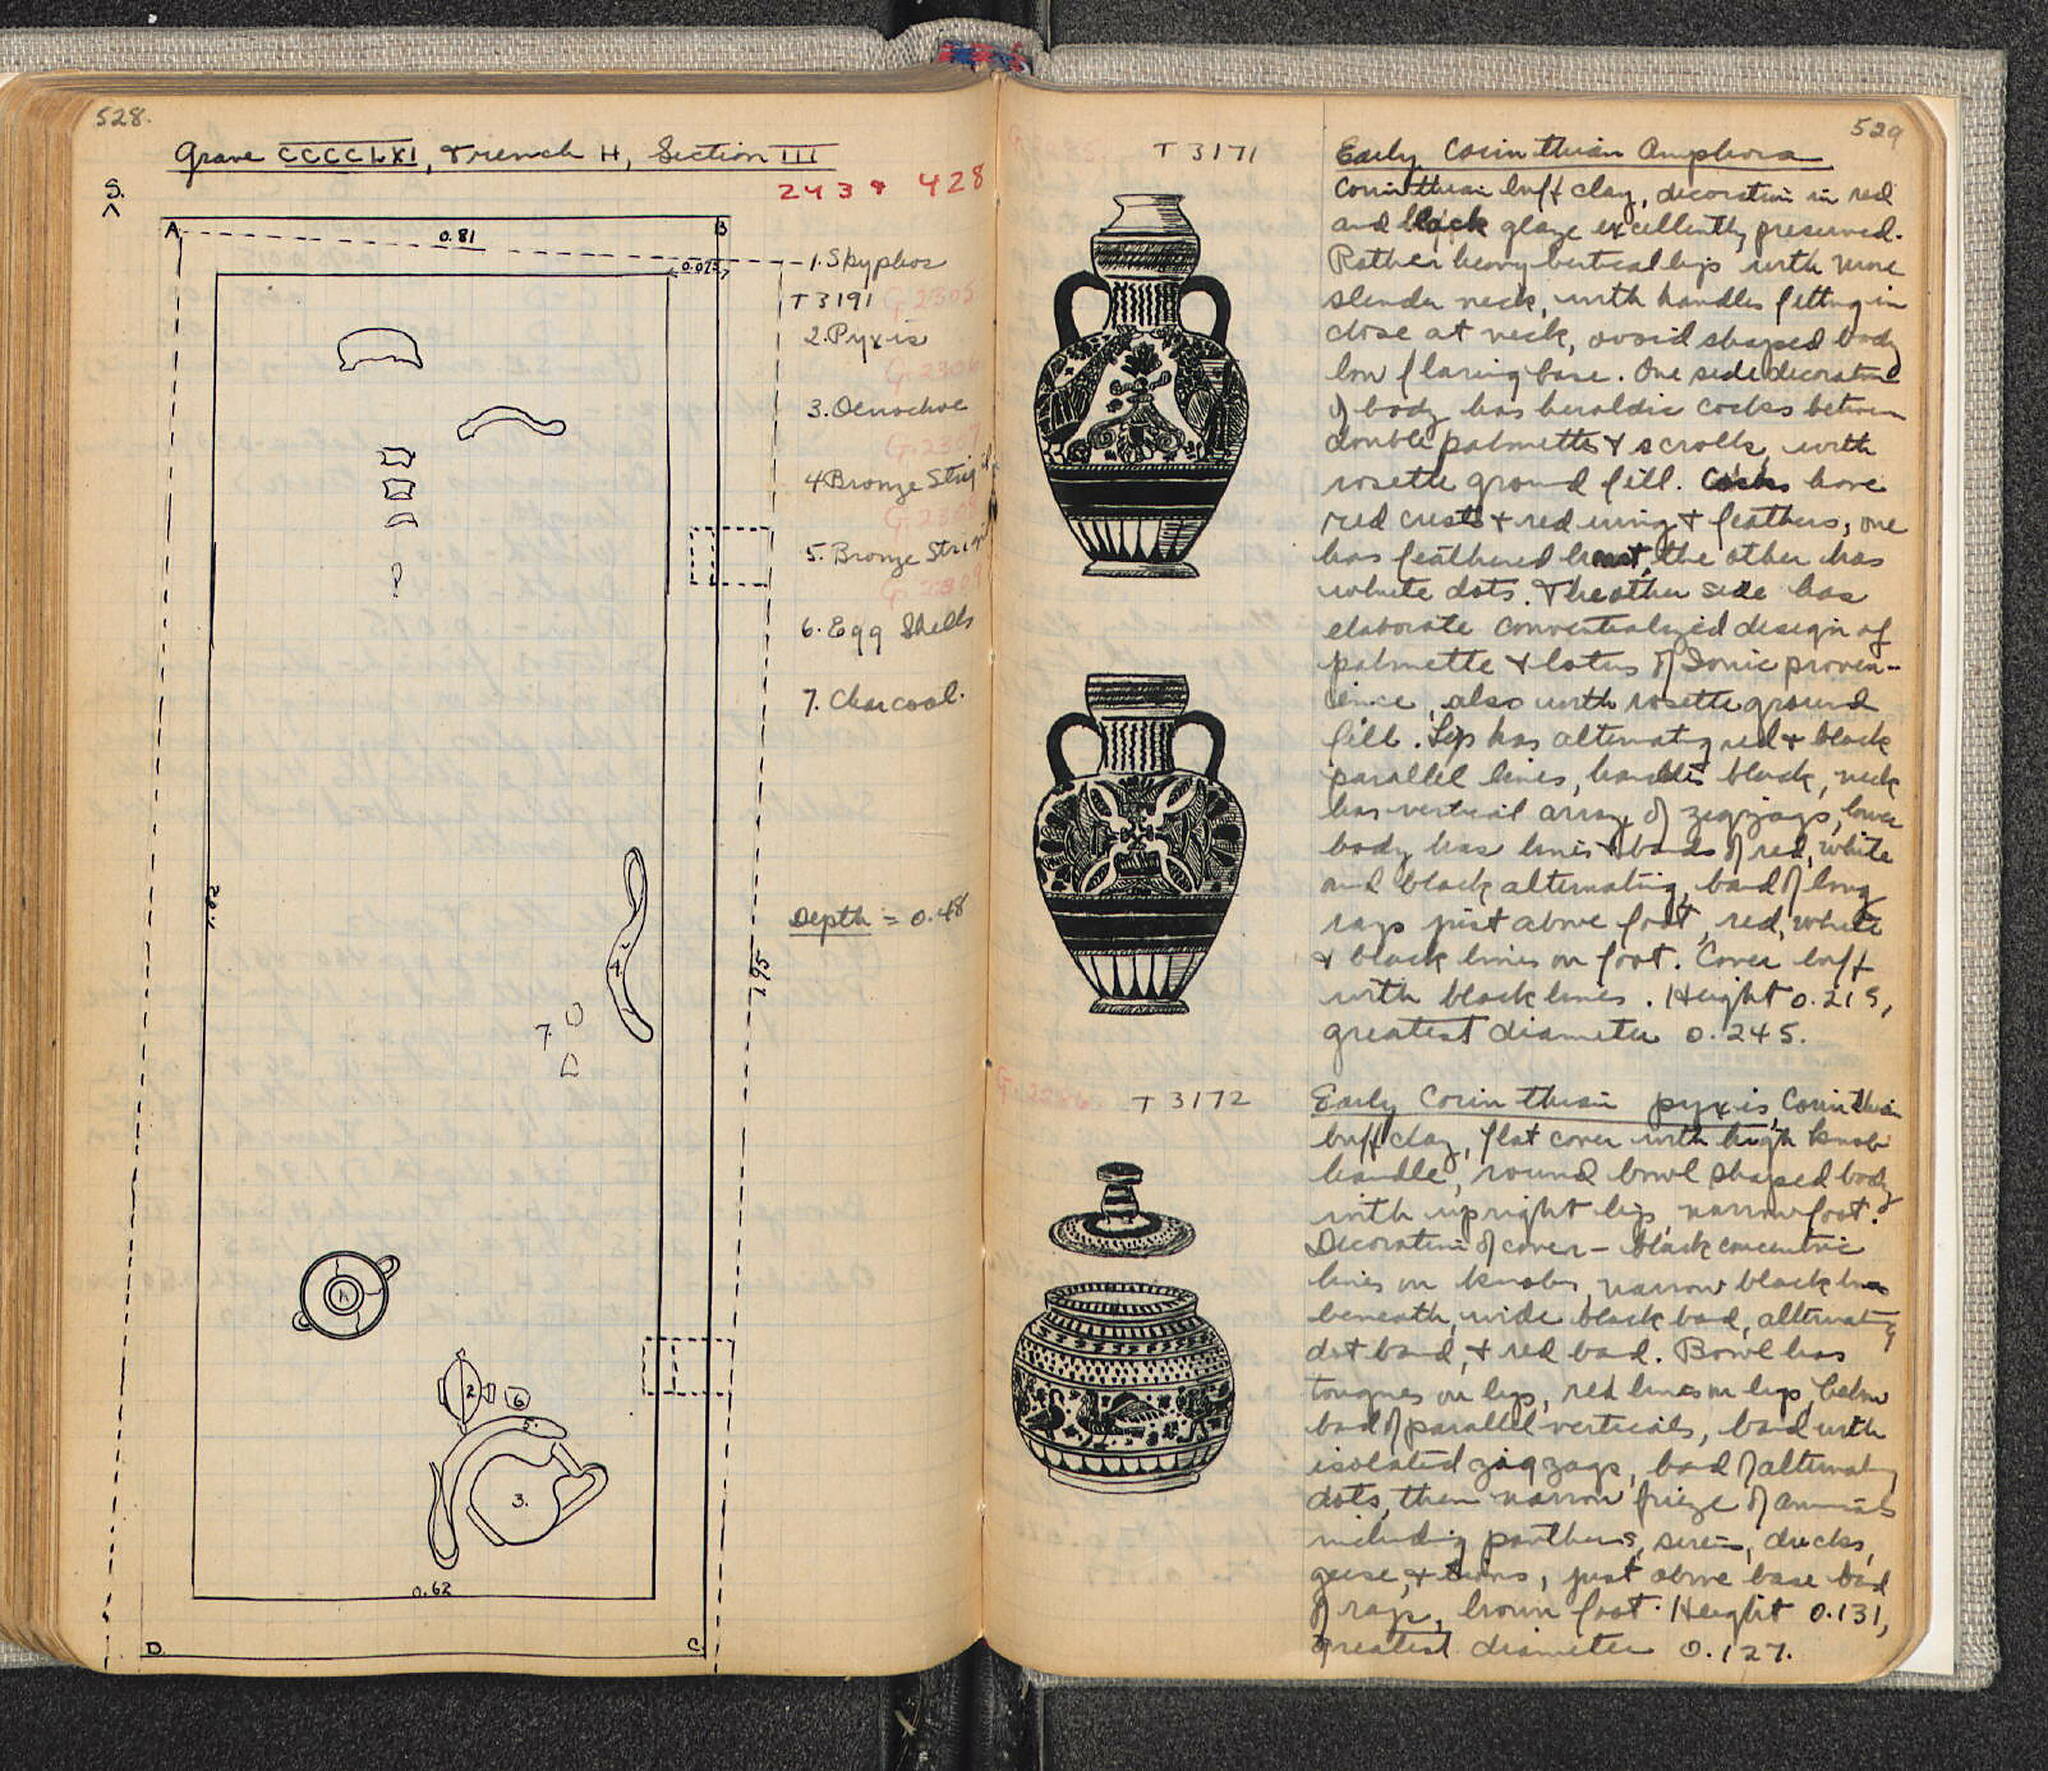 528.
Grave CCCCLXI, Trench H, Section III
2438 428
S.
A
B
0.81
0.075
1. Skyphos
T 3191 G. 2305
2. Pyxis
G. 2306
3. Oenochoe
G. 2307
4 Bronze Strigil
G. 2308
5. Bronze Strigil
G. 2309
6. Egg Shells
7. Charcoal.
Depth = 0.48
1.95
4
7.
1
2
6
5.
3.
0.62
D
C
529
T 3171
Early Corinthian Amphora
Corinthian buff clay, decoration in red
and black glaze excellently preserved.
Rather heavy vertical lip with more
slender neck, with handles fitting in
close at neck, ovoid shaped body
low flaring base. One side decoration
of body has heraldic cocks between
double palmette & scrolls, with
rosette ground fill. Cocks have
red crests & red wing & feathers, one
has feathered breast, the other has
white dots. The other side has
elaborate conventionalized design of
palmette & lotus of Ionic proven-
ience, also with rosette ground
fill. Lip has alternatg red & black
parallel lines, handles black, neck
has vertical array of zigzags, lower
body has lines & bands of red, white
and black alternating, band of long
rays just above foot, red, white
& black lines on foot. Cover buff
with black lines. Height 0.215,
greatest diameter 0.245.
G. 2286
T 3172
Early Corinthian pyxis, Corinthian
buff clay, flat cover with high knob
handle, round bowl shaped body
with upright lip, narrow foot.
Decoration of cover - black concentric
lines on knob, narrow black line
beneath, wide black band, alternating
dot band, & red band. Bowl has
tongues on lip, red lines on lip, below
band of parallel verticals, band with
isolated zigzags, band of alternating
dots, then narrow frieze of animals
including panthers, siren, ducks,
geese, & , just above base band
of rays, brown foot. Height 0.131,
greatest diameter 0.127.